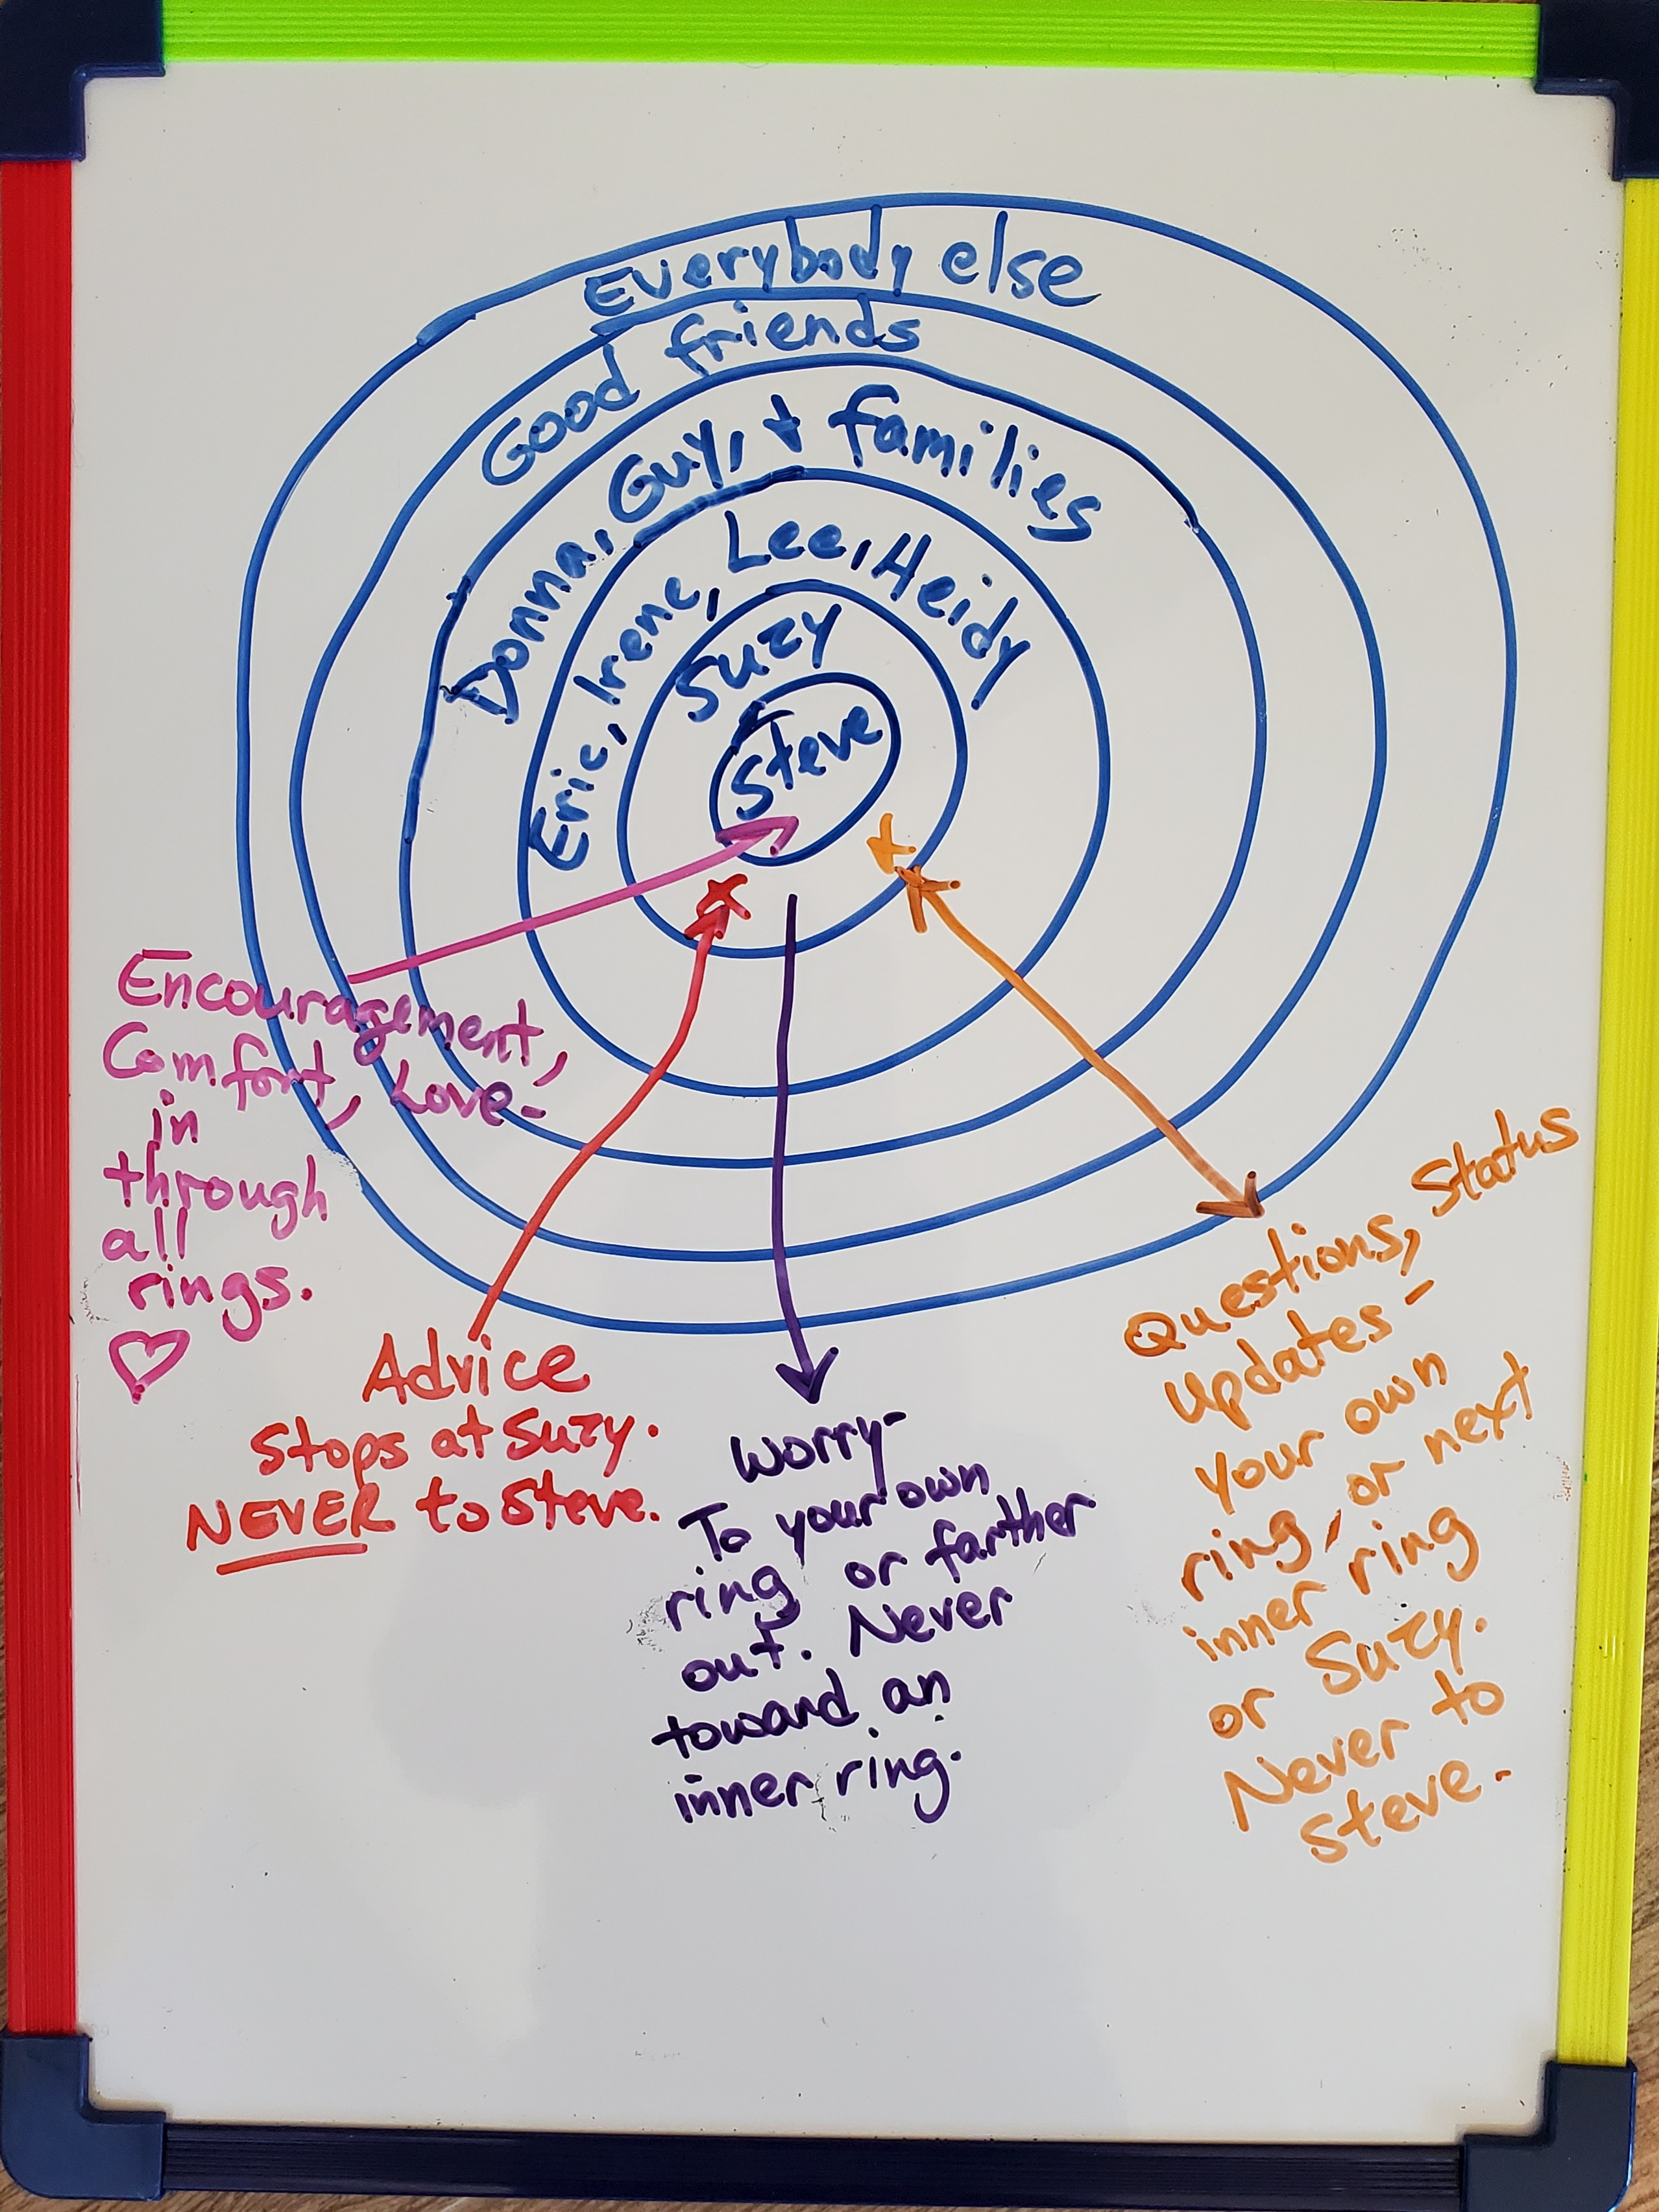 Everybody else
Good friends
Donna, Guy, + families
Eric, Irene, Lee, Heidy
Suzy
Steve
Encouragement,
Comfort, Love-
in
through
all
rings.
Advice
Stops at Suzy.
NEVER to Steve.
Worry-
To your own
ring or farther
out. Never
toward an
inner ring.
Questions, Status
updates-
your own
ring, or next
inner ring
or Suzy.
Never to
Steve.